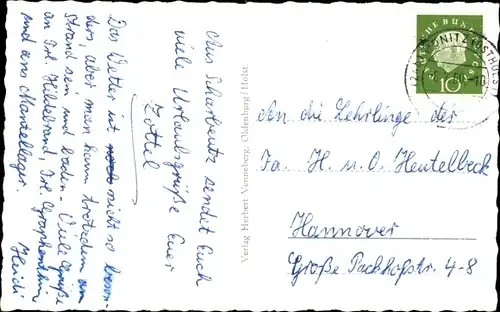 Aus Scharbeutz sendet Euch
viele Urlaubsgrüße Euer
Zottel
Das Wetter ist nicht so beson-
ders, aber man kann trotzdem am
Strand sein und baden. Viele Grüße
an Frl. Hildebrand, Frl.
und ans Mantellager.
Heidi
Verlag Herbert Venneberg, Oldenburg/Holst.
DEUTSCHE BUNDESPOST
10
An die Lehrlinge der
Fa. H. u. O. Heutelbeck
Hannover
Große Packhofstr. 4-8